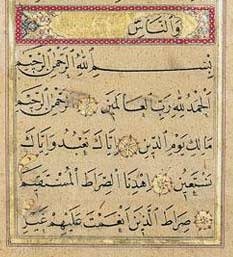 وَالنَّاسِ
بِسْمِ اللهِ الرَّحْمٰنِ الرَّحِيمِ
اَلْحَمْدُ لِلّٰهِ رَبِّ الْعَالَمِينَ الرَّحْمٰنِ الرَّحِيمِ
مَالِكِ يَوْمِ الدِّينِ اِيَّاكَ نَعْبُدُ وَاِيَّاكَ
نَسْتَعِينُ اِهْدِنَا الصِّرَاطَ الْمُسْتَقِيمَ
صِرَاطَ الَّذِينَ اَنْعَمْتَ عَلَيْهِمْ غَيْرِ